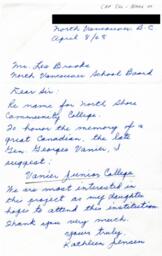 North Vancouver B.C.
April 8/68
Mr. Leo Brooks
North Vancouver School Board
Dear Sir:
Re name for North Shore
Community College.
To honor the memory of a
great Canadian, the late
Gen. Georges Vanier, I
suggest:
Vanier Junior College
We are most interested in
this project as my daughter
hopes to attend this institution.
Thank you very much.
Yours truly,
Kathleen Jensen